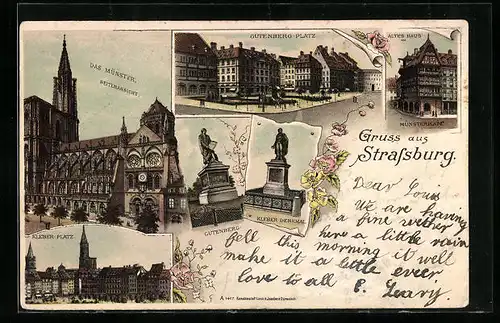 GUTENBERG-PLATZ
ALTES HAUS
DAS MÜNSTER.
SEITENANSICHT
MÜNSTERPLATZ
Gruss aus
Strafsburg.
GUTENBERG
KLEBER DENKMAL
KLEBER-PLATZ
Dear Louis
We are having
a fine
here a little rain
fell this morning it well
make it a little
love to all E. Leary.